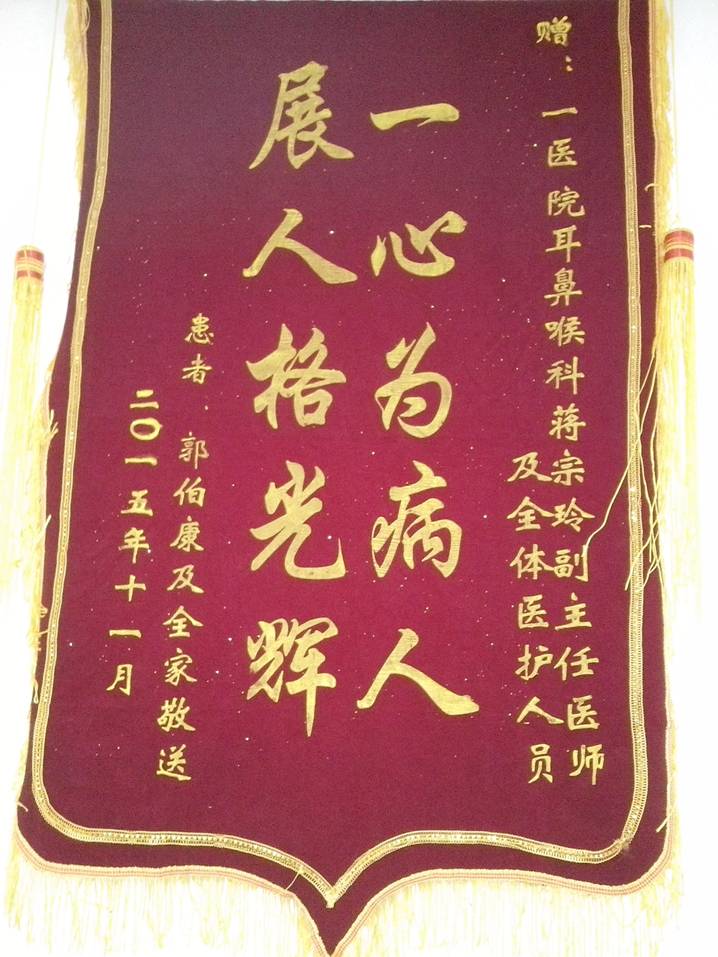 赠：一医院耳鼻喉科蒋宗玲副主任医师
及全体医护人员
一心为病人
展人格光辉
患者：郭伯康及全家敬送
二〇一五年十一月